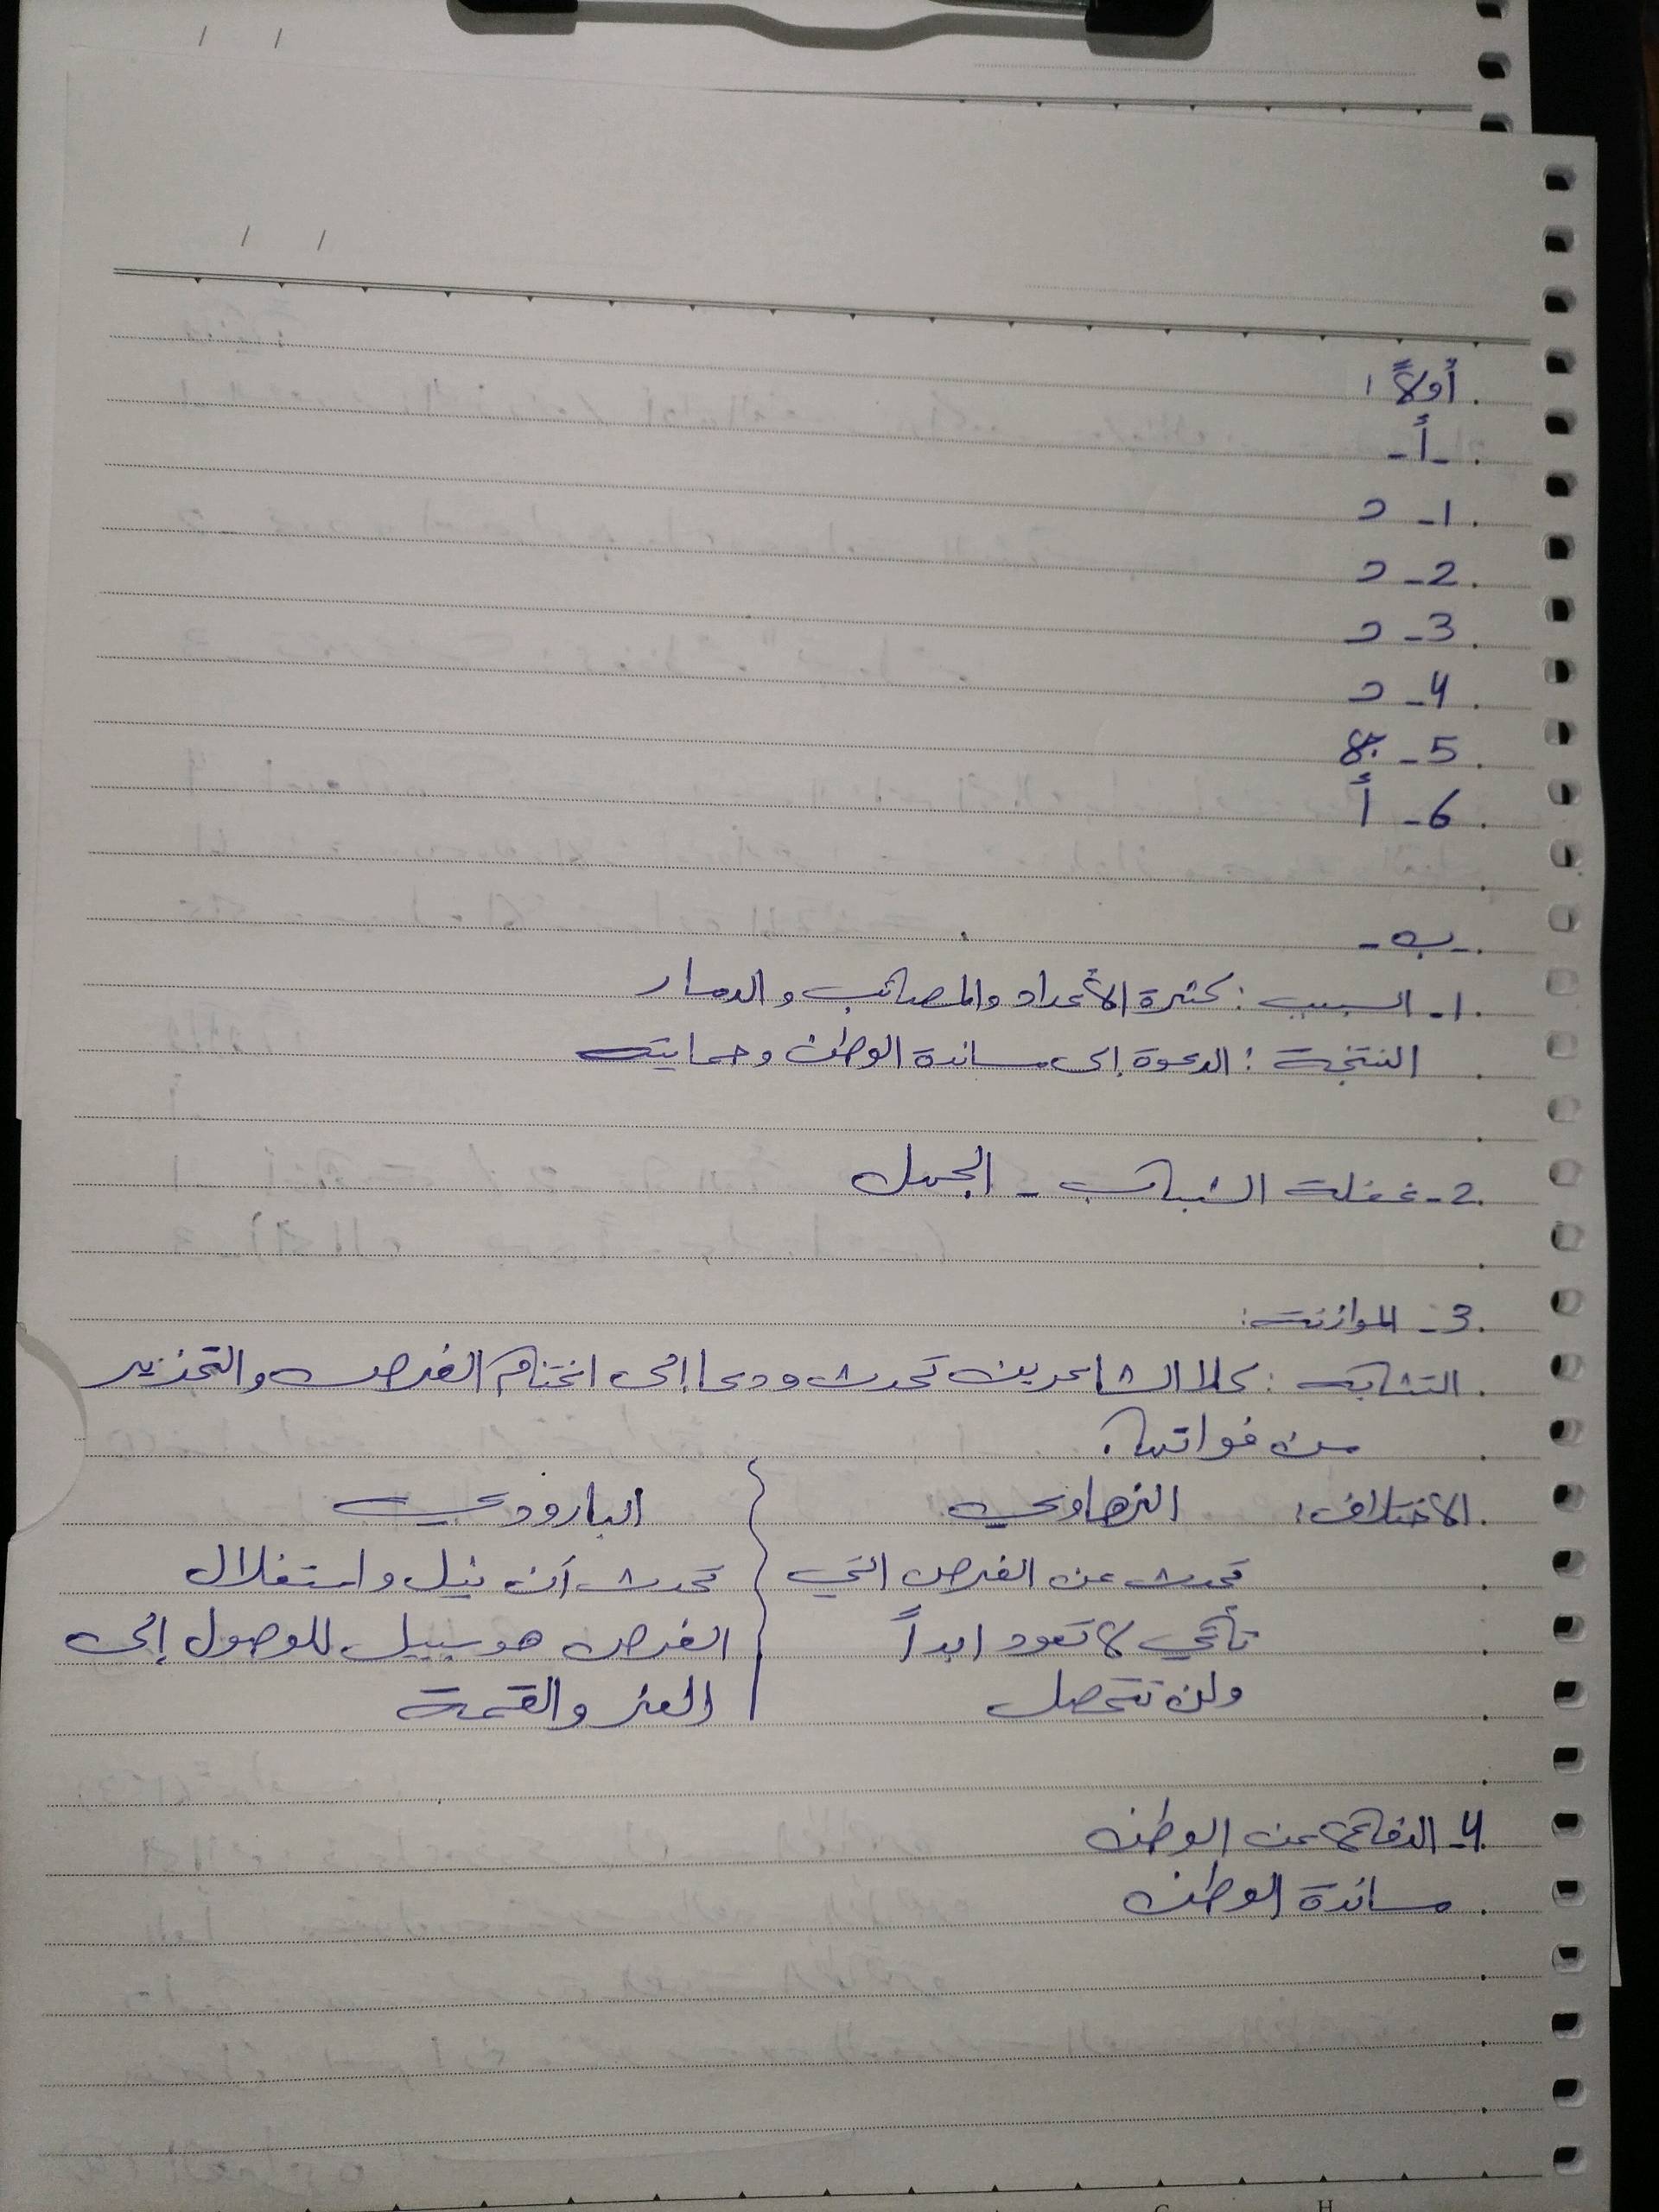 أولاً:
-أ-
1- د
2- د
3- د
4- د
5- ج
6- أ
-ب-
1- السبب: كثرة الأعداء والمصائب والدمار
النتيجة: الدعوة إلى مساندة الوطن وحمايته
2- غفلة الشباب - الجهل
3- الموازنة:
التشابه: كلا الشاعرين تحدث ودعا إلى اغتنام الفرص والتحذير
من فواتها.
الاختلاف: الزهاوي البارودي
تحدث عن الفرص التي تحدث أن نيل واستغلال
تأتي لا تعود ابداً الفرص هو سبيل للوصول إلى
ولن تتحصل العز والقمة
4- الدفاع عن الوطن
مساندة الوطن